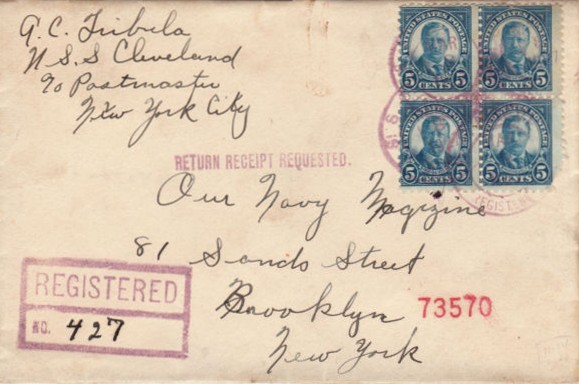 G.C. Tribula
U S S Cleveland
c/o Postmaster
New York City
UNITED STATES POSTAGE
UNITED STATES POSTAGE
5 CENTS 5
5 CENTS 5
UNITED STATES POSTAGE
UNITED STATES POSTAGE
5 CENTS 5
5 CENTS 5
RETURN RECEIPT REQUESTED.
Our Navy Magizine
81 Sands Street
Brooklyn
New York
REGISTERED
NO. 427
73570